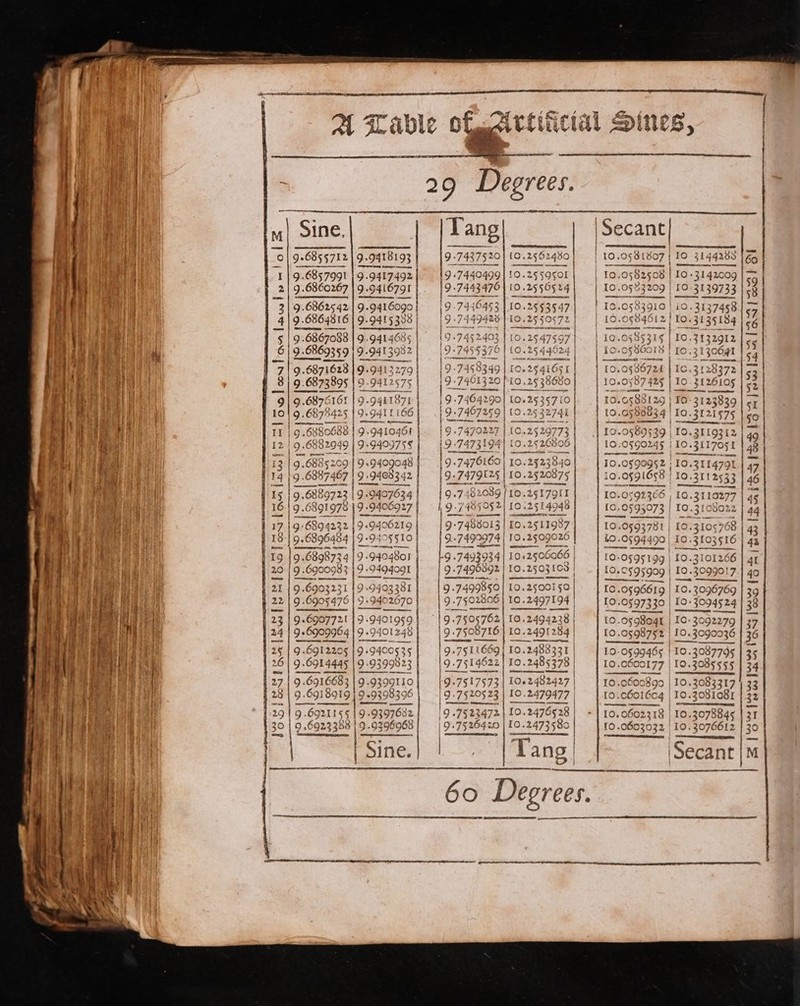 A Table of Artificial Sines,
29 Degrees.
M Sine. Tang Secant
0 9.6855712 9.9418193 9.7437520 10.2562480 10.0581807 10 3144288 60
1 9.6857991 9.9417492 9.7440499 10.2559501 10.0582508 10.3142009 59
2 9.6860267 9.9416791 9.7443476 10.2556524 10.0583209 10.3139733 58
3 9.6862542 9.9416090 9.7446453 10.2553547 10.0583910 10.3137458 57
4 9.6864816 9.9415388 9.7449428 10.2550572 10.0584612 10.3135184 56
5 9.6867088 9.9414685 9.7452403 10.2547597 10.0585315 10.3132912 55
6 9.6869359 9.9413982 9.7455376 10.2544624 10.0586018 10.3130641 54
7 9.6871628 9.9413279 9.7458349 10.2541651 10.0586721 10.3128372 53
8 9.6873895 9.9412575 9.7461320 10.2538680 10.0587425 10.3126105 52
9 9.6876161 9.9411871 9.7464290 10.2535710 10.0588129 10.3123839 51
10 9.6878425 9.9411166 9.7467259 10.2532741 10.0588834 10.3121575 50
11 9.6880688 9.9410461 9.7470227 10.2529773 10.0589539 10.3119312 49
12 9.6882949 9.9409755 9.7473194 10.2526806 10.0590245 10.3117051 48
13 9.6885209 9.9409048 9.7476160 10.2523840 10.0590952 10.3114791 47
14 9.6887467 9.9408342 9.7479125 10.2520875 10.0591658 10.3112533 46
15 9.6889723 9.9407634 9.7482089 10.2517911 10.0592366 10.3110277 45
16 9.6891978 9.9406927 9.7485052 10.2514948 10.0593073 10.3108022 44
17 9.6894232 9.9406219 9.7488013 10.2511987 10.0593781 10.3105768 43
18 9.6896484 9.9405510 9.7490974 10.2509026 10.0594490 10.3103516 42
19 9.6898734 9.9404801 9.7493934 10.2506066 10.0595199 10.3101266 41
20 9.6900983 9.9404091 9.7496892 10.2503108 10.0595909 10.3099017 40
21 9.6903231 9.9403381 9.7499850 10.2500150 10.0596619 10.3096769 39
22 9.6905476 9.9402670 9.7502806 10.2497194 10.0597330 10.3094524 38
23 9.6907721 9.9401959 9.7505762 10.2494238 10.0598041 10.3092279 37
24 9.6909964 9.9401248 9.7508716 10.2491284 10.0598752 10.3090036 36
25 9.6912205 9.9400535 9.7511669 10.2488331 10.0599465 10.3087795 35
26 9.6914445 9.9399823 9.7514622 10.2485378 10.0600177 10.3085555 34
27 9.6916683 9.9399110 9.7517573 10.2482427 10.0600890 10.3083317 33
28 9.6918919 9.9398396 9.7520523 10.2479477 10.0601604 10.3081081 32
29 9.6921155 9.9397682 9.7523472 10.2476528 10.0602318 10.3078845 31
30 9.6923388 9.9396968 9.7526420 10.2473580 10.0603032 10.3076612 30
Sine. Tang Secant M
60 Degrees.